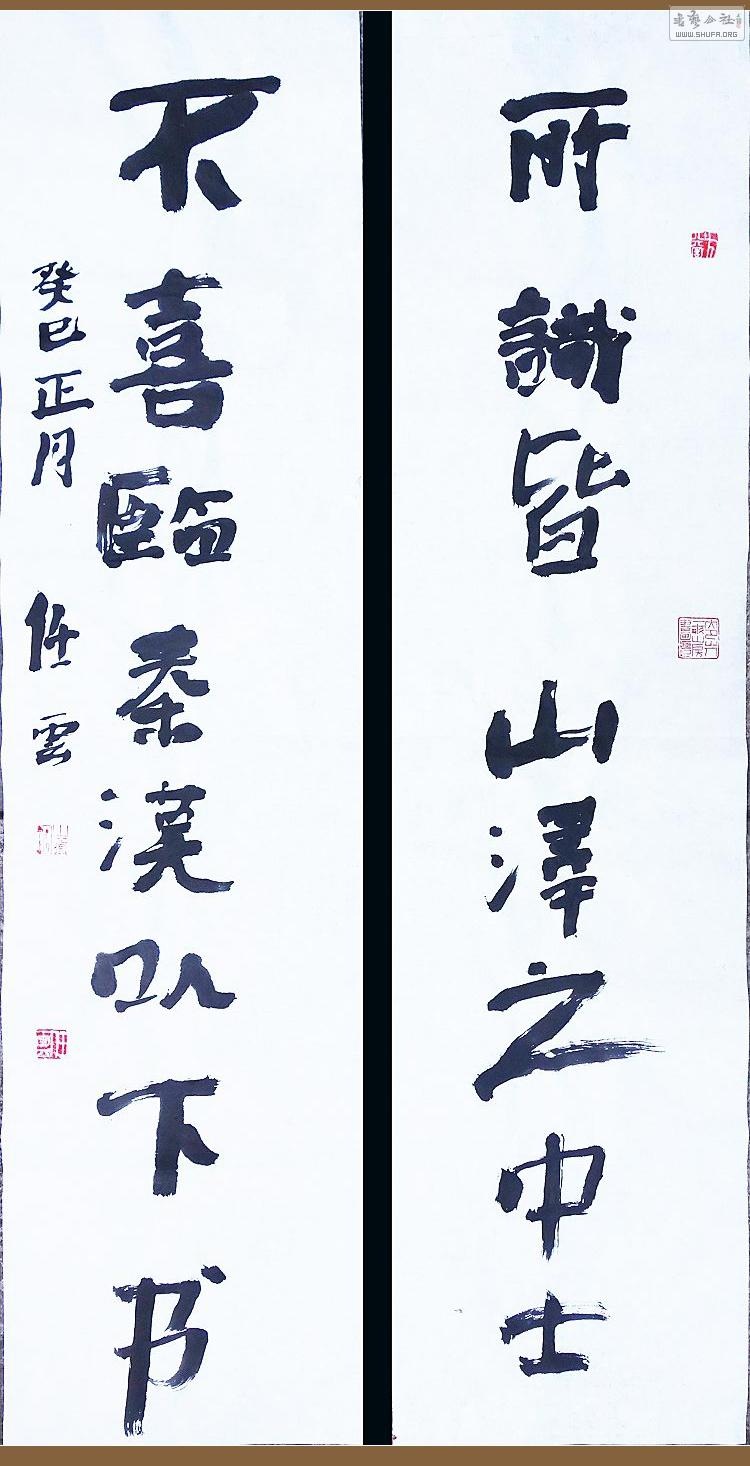 所識皆山澤之中士
不喜臨秦漢㠯下书
癸巳正月
任雲
WWW.SHUFA.ORG